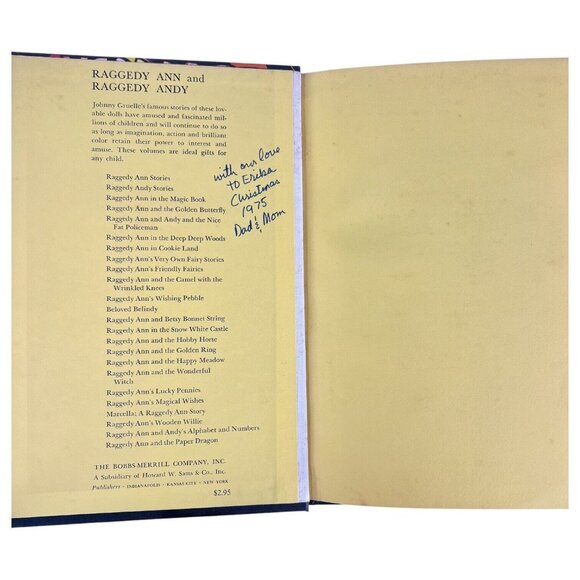 RAGGEDY ANN and
RAGGEDY ANDY
Johnny Gruelle's famous stories of these lov-
able dolls have amused and fascinated mil-
lions of children and will continue to do so
as long as imagination, action and brilliant
color retain their power to interest and
amuse. These volumes are ideal gifts for
any child.
Raggedy Ann Stories
Raggedy Andy Stories
Raggedy Ann in the Magic Book
Raggedy Ann and the Golden Butterfly
Raggedy Ann and Andy and the Nice
Fat Policeman
Raggedy Ann in the Deep Deep Woods
Raggedy Ann in Cookie Land
Raggedy Ann's Very Own Fairy Stories
Raggedy Ann's Friendly Fairies
Raggedy Ann and the Camel with the
Wrinkled Knees
Raggedy Ann's Wishing Pebble
Beloved Belindy
Raggedy Ann and Betsy Bonnet String
Raggedy Ann in the Snow White Castle
Raggedy Ann and the Hobby Horse
Raggedy Ann and the Golden Ring
Raggedy Ann and the Happy Meadow
Raggedy Ann and the Wonderful
Witch
Raggedy Ann's Lucky Pennies
Raggedy Ann's Magical Wishes
Marcella: A Raggedy Ann Story
Raggedy Ann's Wooden Willie
Raggedy Ann and Andy's Alphabet and Numbers
Raggedy Ann and the Paper Dragon
THE BOBBS-MERRILL COMPANY, INC.
A Subsidiary of Howard W. Sams & Co., Inc.
Publishers · INDIANAPOLIS · KANSAS CITY · NEW YORK
$2.95
with our love
to Erika
Christmas
1975
Dad & Mom